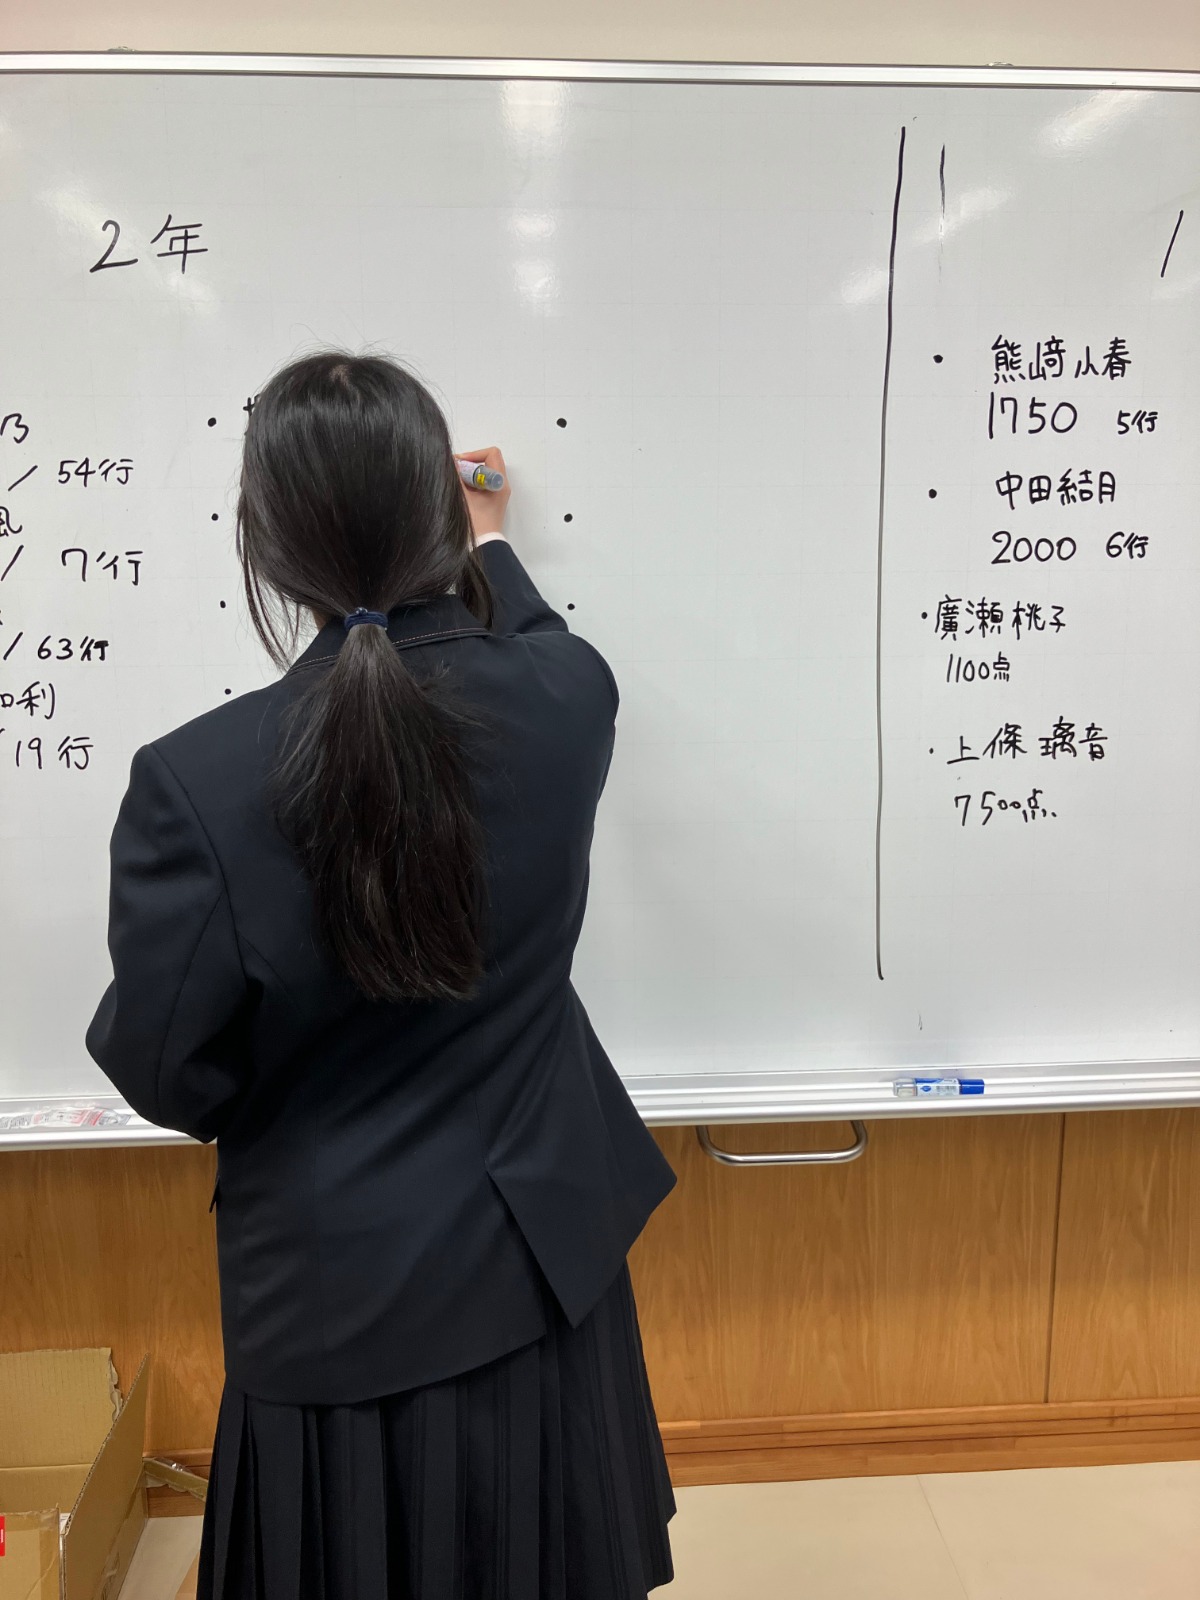 2年
54行
7行
63行
和利
19行
熊﨑小春
1750 5行
中田結月
2000 6行
・廣瀬桃子
1100点
・上條璃音
7500点